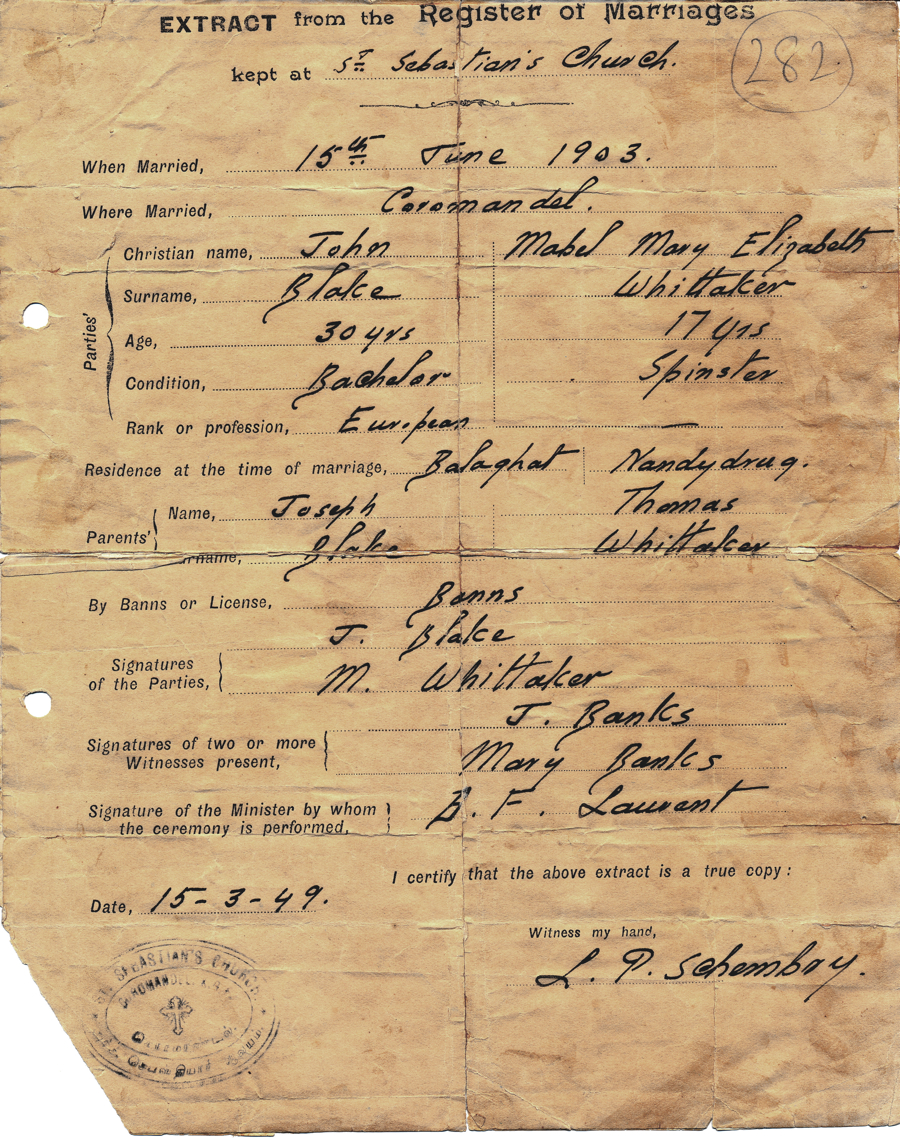 EXTRACT from the Register of Marriages
kept at St Sebastian's Church.
282
When Married, 15th June 1903.
Where Married, Coromandel.
Parties'
Christian name, John Mabel Mary Elizabeth
Surname, Blake Whittaker
Age, 30 yrs 17 yrs
Condition, Bachelor Spinster
Rank or profession, European —
Residence at the time of marriage, Balaghat Nandydrug.
Parents'
Name, Joseph Thomas
Blake Whittaker
By Banns or License, Banns
J. Blake
Signatures of the Parties, M. Whittaker
J. Banks
Signatures of two or more
Witnesses present, Mary Banks
Signature of the Minister by whom
the ceremony is performed, B. F. Laurent
I certify that the above extract is a true copy:
Date, 15-3-49.
Witness my hand,
L. P. Schembry.
ST. SEBASTIAN'S CHURCH
COROMANDEL